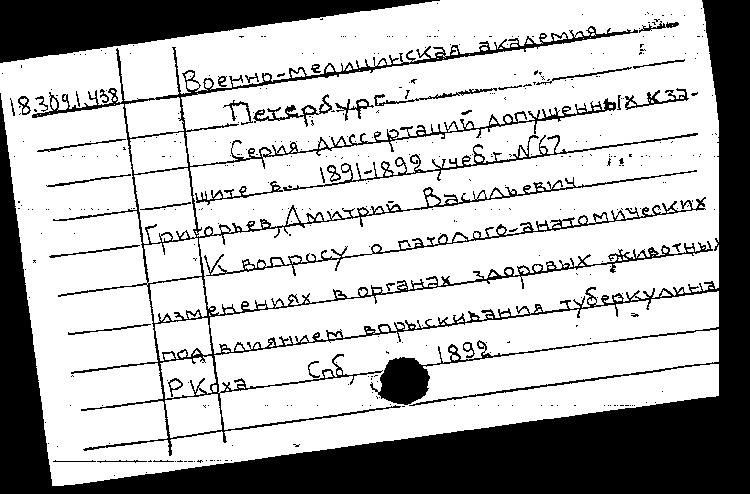 Военно-медицинская академия.
18.309.1.438
Петербург
Серия диссертаций, допущенных к за-
щите в... 1891-1892 учеб.г. N67.
Григорьев, Дмитрий Васильевич
К вопросу о патолого-анатомических
изменениях в органах здоровых животных
под влиянием впрыскивания туберкулина
Р. Коха. Спб, 1892.